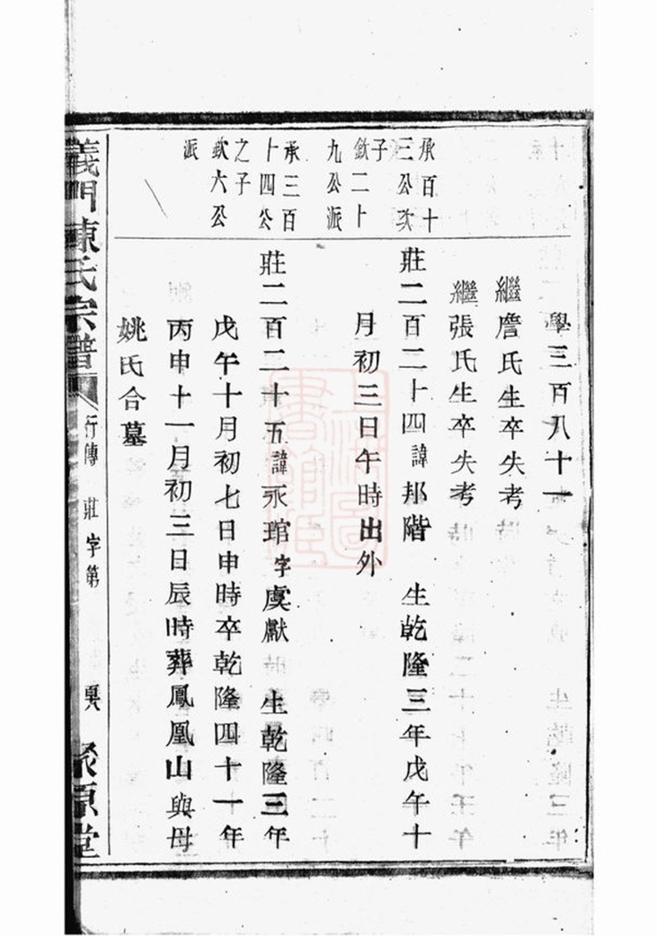 學三百八十一
繼詹氏生卒失考
繼張氏生卒失考
承百十
三公次
子
欽二十
九公派
莊二百二十四諱邦階 生乾隆三年戊午十
月初三日午時出外
承三百
十四公
之子
欽六公
派
莊二百二十五諱永琯字虞獻 生乾隆三年
戊午十月初七日申時卒乾隆四十一年
丙申十一月初三日辰時葬鳳凰山與母
姚氏合墓
義門陳氏宗譜
行傳 莊字第
聚原堂